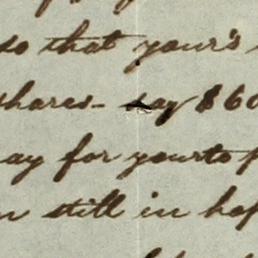 so that your's
shares - say $60
ay for yours to p
n still in hop